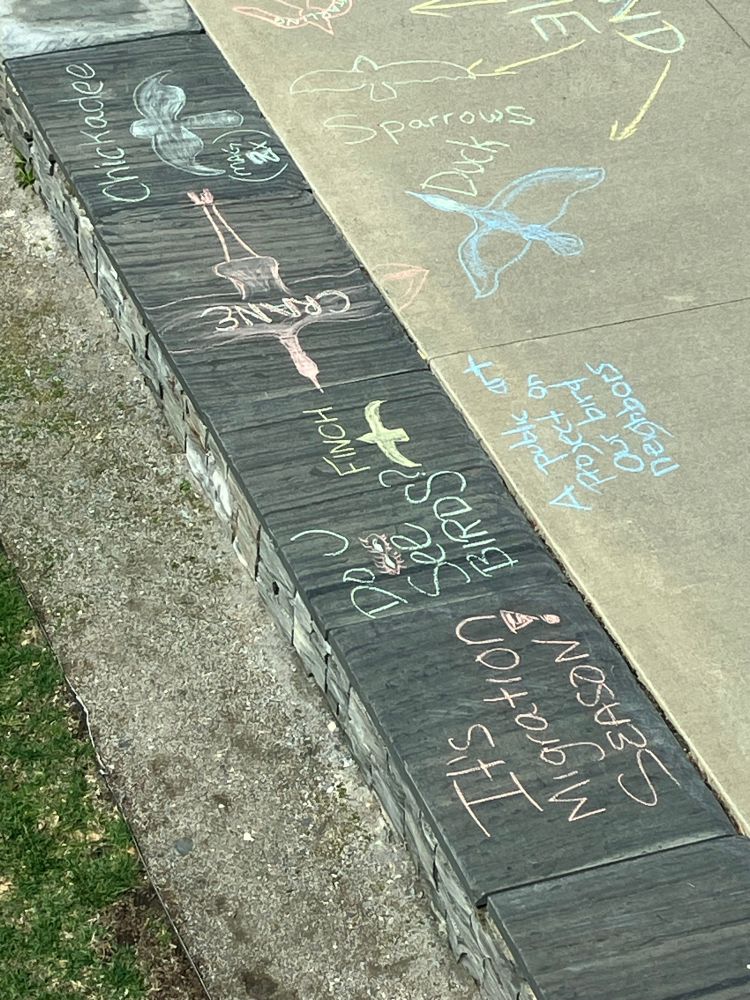 Chickadee
(mag
2x)
CRANE
FINCH
Do U
See
BIRDS?
It's
Migration
SEASON!
Sparrows
Duck
A public art
Project on
Our bird
neighbors